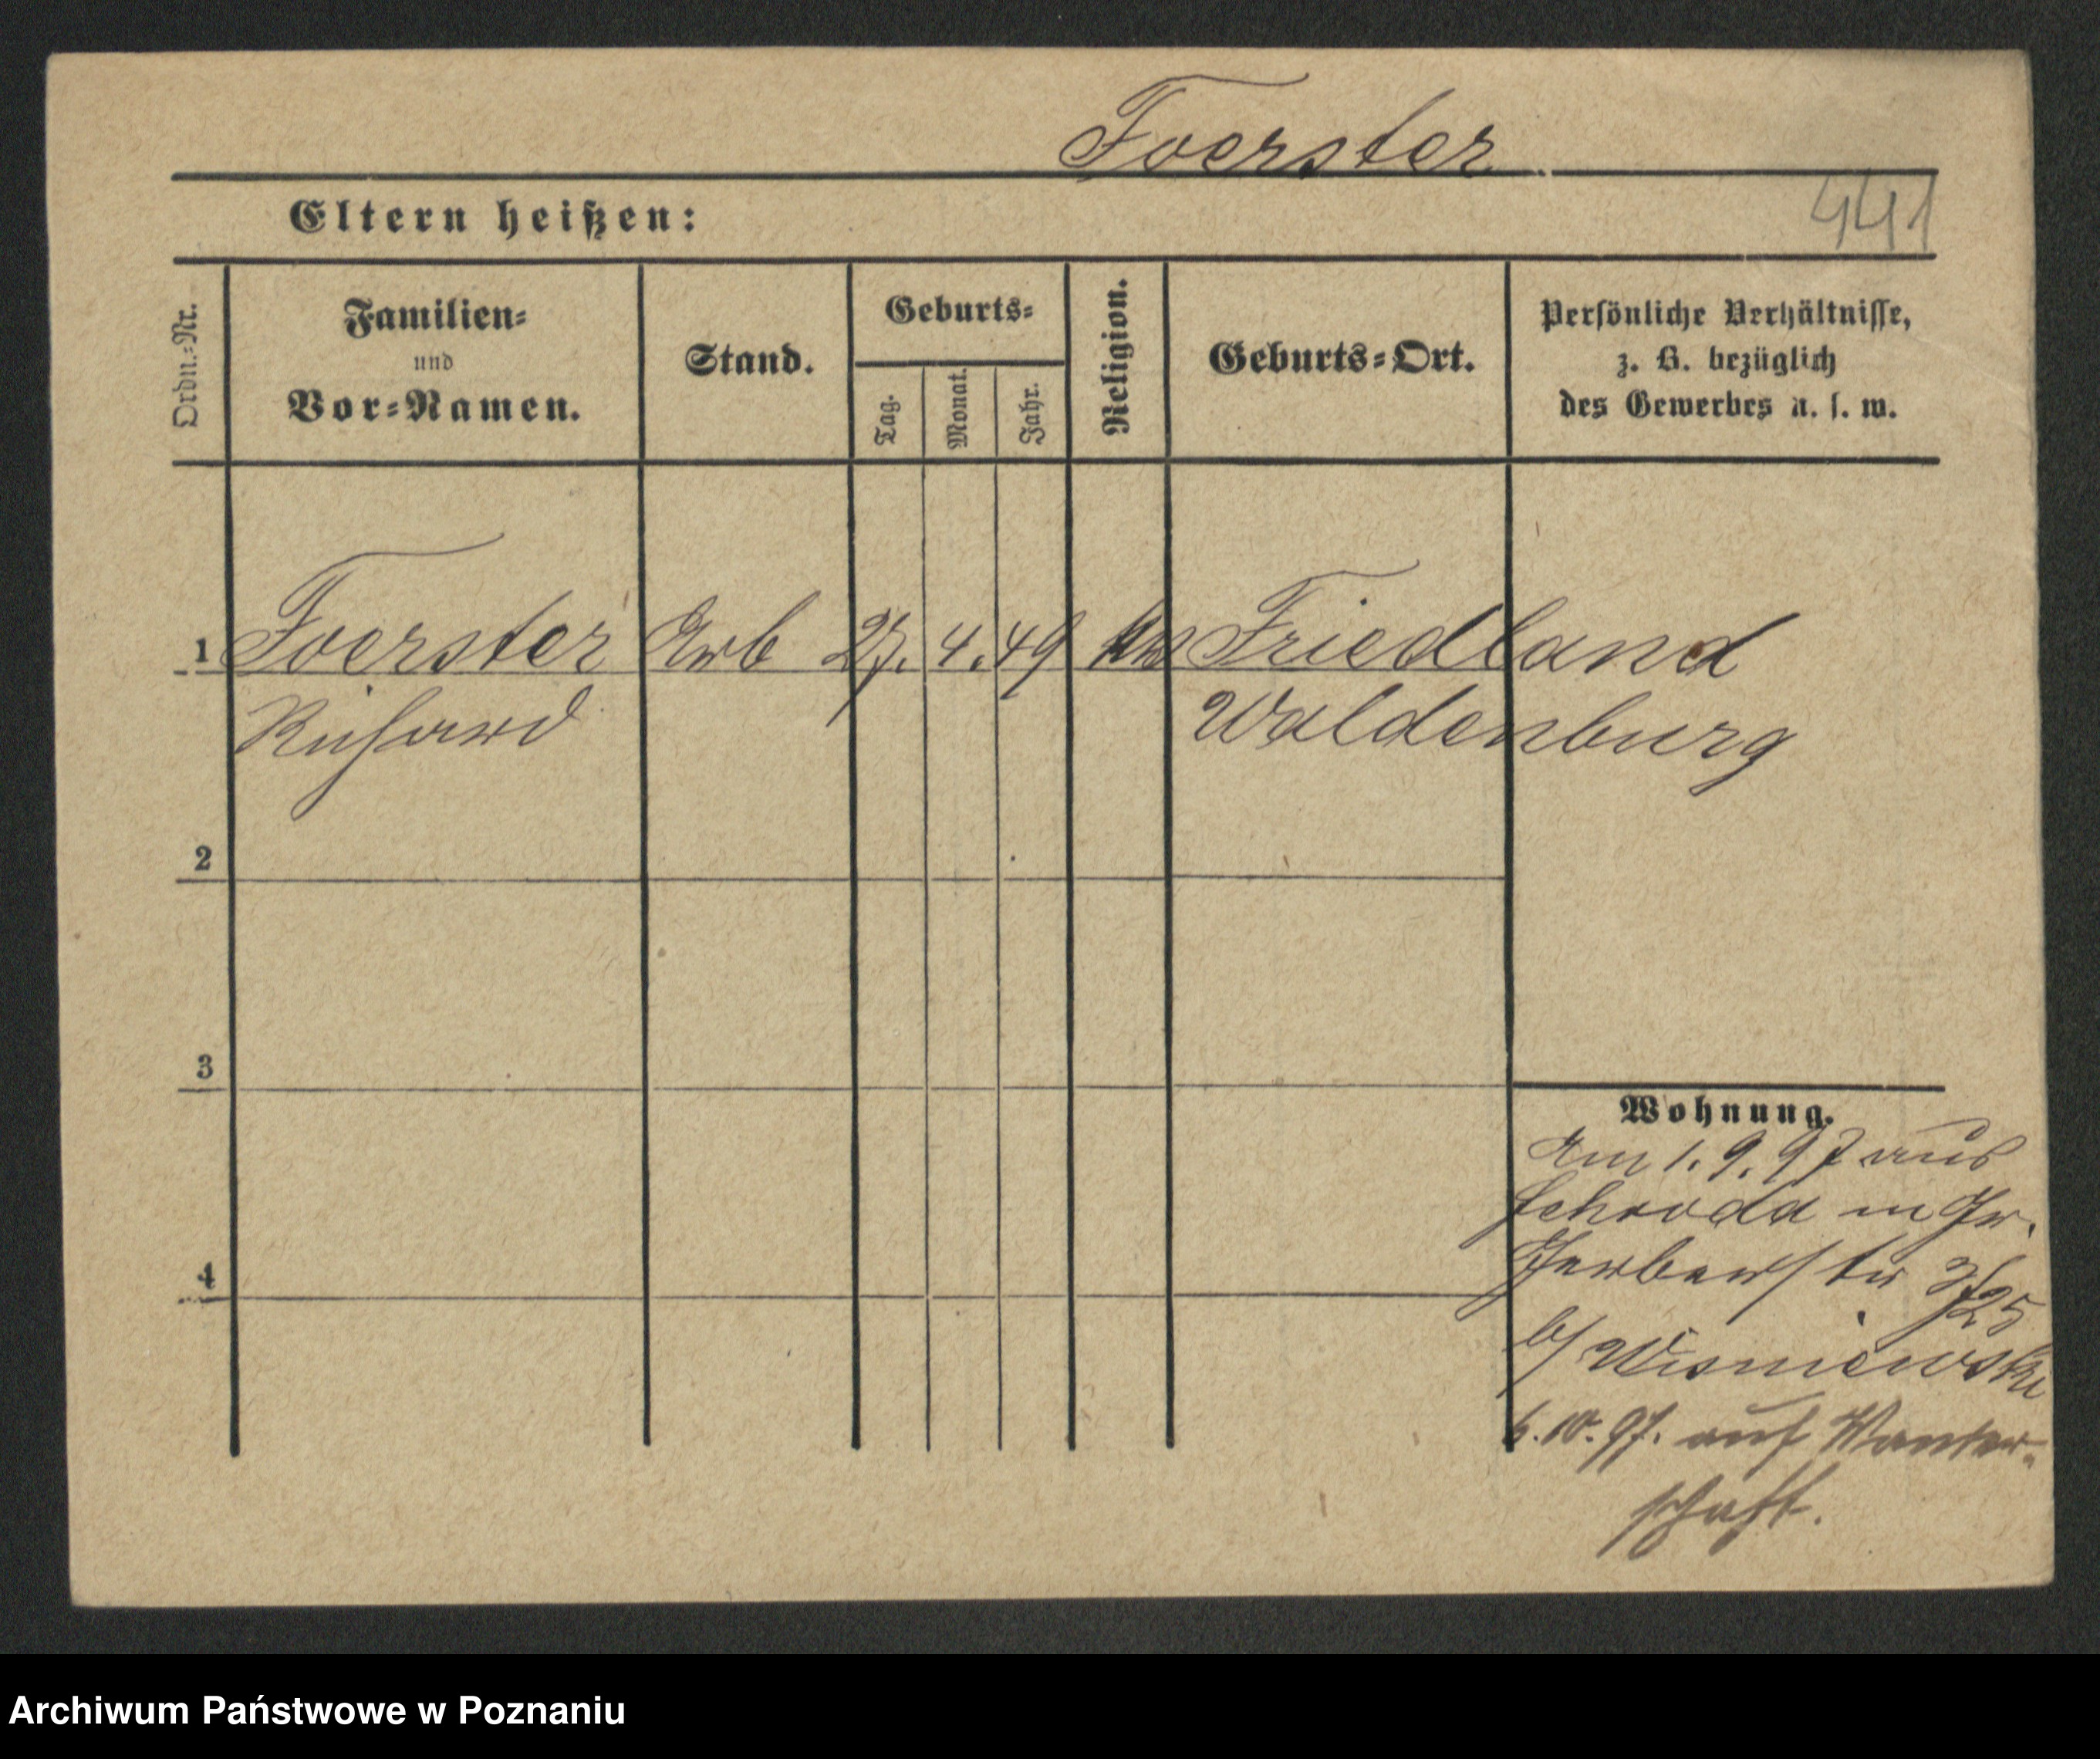 Foerster
Eltern heißen:
441
Ordn.=Nr.
Familien=
und
Vor=Namen.
Stand.
Geburts=
Tag.
Monat.
Jahr.
Religion.
Geburts=Ort.
Persönliche Verhältnisse,
z. B. bezüglich
des Gewerbes u. s. w.
1 Foerster Arb 27. 4. 49 Friedland
Richard Waldenburg
2
3
4
Wohnung.
Am 1. 9. 97 aus
Schroda in Gr.
Gerberstr 25
b/ Wisniewski
6. 10. 97. auf Wander=
schaft.
Archiwum Państwowe w Poznaniu